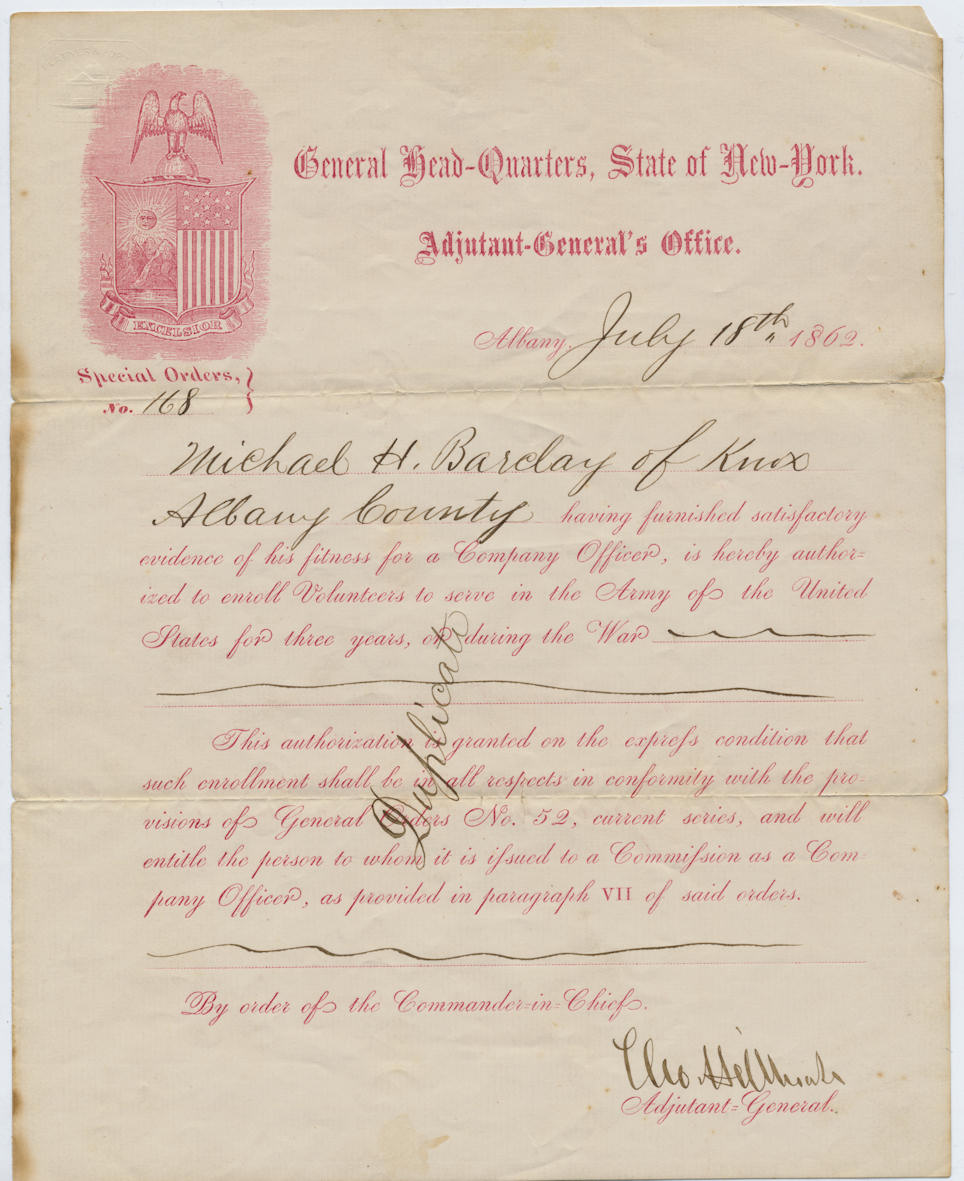 General Head-Quarters, State of New-York.
Adjutant-General's Office.
Albany, July 18th 1862.
EXCELSIOR
Special Orders,
No. 168
Michael H. Barclay of Knox
Albany County having furnished satisfactory
evidence of his fitness for a Company Officer, is hereby author=
ized to enroll Volunteers to serve in the Army of the United
States for three years, or during the War
Duplicate
This authorization is granted on the express condition that
such enrollment shall be in all respects in conformity with the pro=
visions of General Orders No. 52, current series, and will
entitle the person to whom it is issued to a Commission as a Com=
pany Officer, as provided in paragraph VII of said orders.
By order of the Commander=in=Chief.
Adjutant=General.